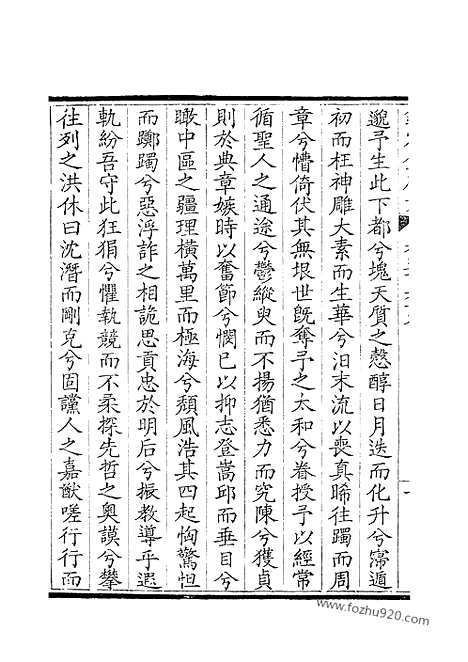 邈予生此下都兮塊天質之慤醇日月迭而化升兮寖遁
初而枉神雕大素而生華兮汨末流以喪真晞往躅而周
章兮懵倚伏其無垠世旣奪予之太和兮眷授予以經常
循聖人之通途兮鬱縱臾而不揚猶悉力而究陳兮獲貞
則於典章嫉時以奮節兮憫己以抑志登嵩邱而垂目兮
瞰中區之疆理橫萬里而極海兮頹風浩其四起恟驚怛
而躑躅兮惡浮詐之相詭思貢忠於明后兮振教導乎遐
軌紛吾守此狂狷兮懼執競而不柔探先哲之奧謨兮攀
往列之洪休曰沈潛而剛克兮固讜人之嘉猷嗟行行而
www.fozhu920.com